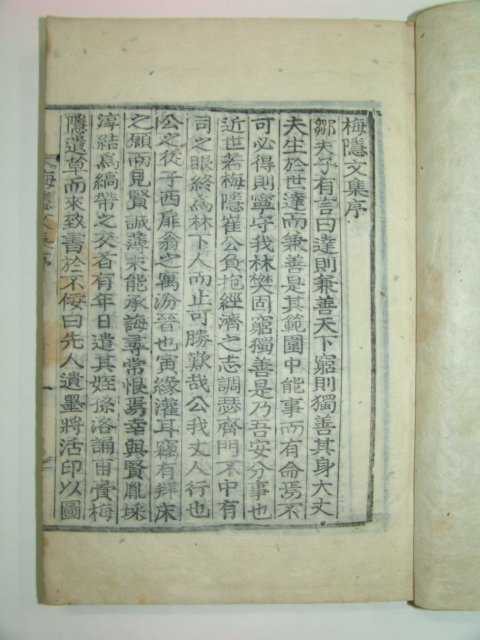 梅隱文集序
鄒夫子有言曰達則兼善天下窮則獨善其身大丈
夫生於世達而兼善是其範圍中能事而有命焉不
可必得則寧守我林樊固窮獨善是乃吾安分事也
近世若梅隱崔公負抱經濟之志調瑟齊門不中有
司之眼終爲林下人而止可勝歎哉公我丈人行也
公之從子西扉翁之寓汾晉也寅緣灌耳竊有拜床
之願而見賢誠薄未能承誨尋常恨焉幸與賢胤埰
淳結爲縞帶之交者有年日遣其姪孫洛誦甫賫梅
隱遺草而來致書於不佞曰先人遺墨將活印以圖
梅隱文集序